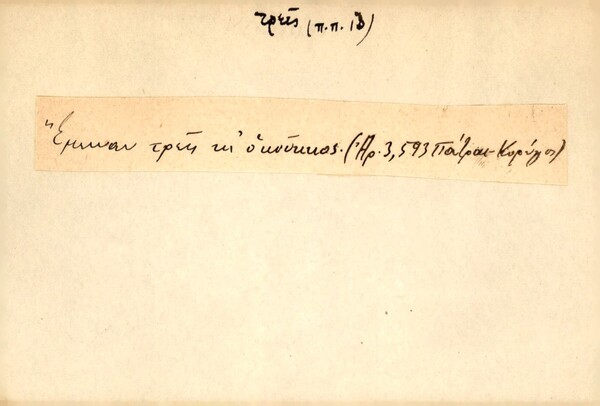 τρεῖς (π.π. 13)
Ἔμειναν τρεῖς κι' ὁ κούκκος. (Ἀρ. 3,593 Πάτραι - Κορύλος)